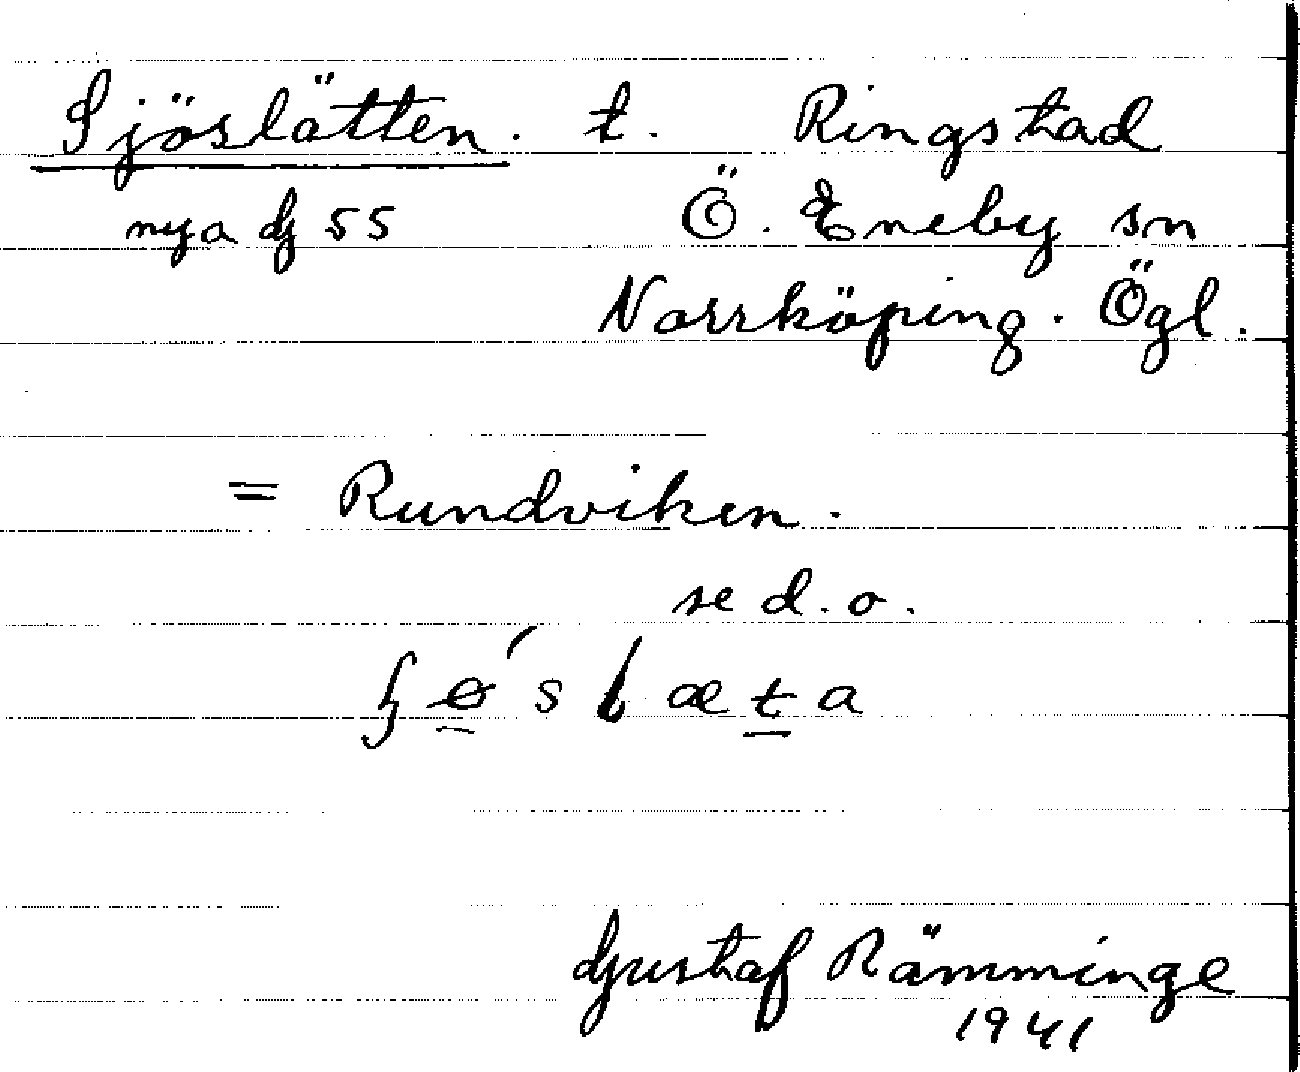 Sjöslätten. t. Ringstad
nya dj 55 Ö. Eneby sn
Norrköping. Ögl.
= Rundviken.
se d.o.
Gustaf Rämminge
1941